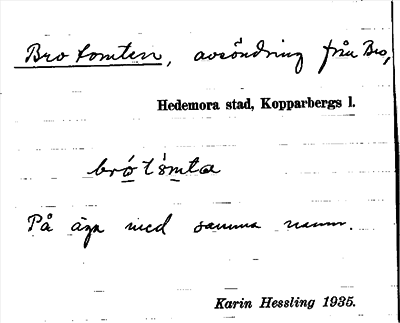 Brotomten, avsöndring från Bro,
Hedemora stad, Kopparbergs l.
brótómta
På äga med samma namn.
Karin Hessling 1935.